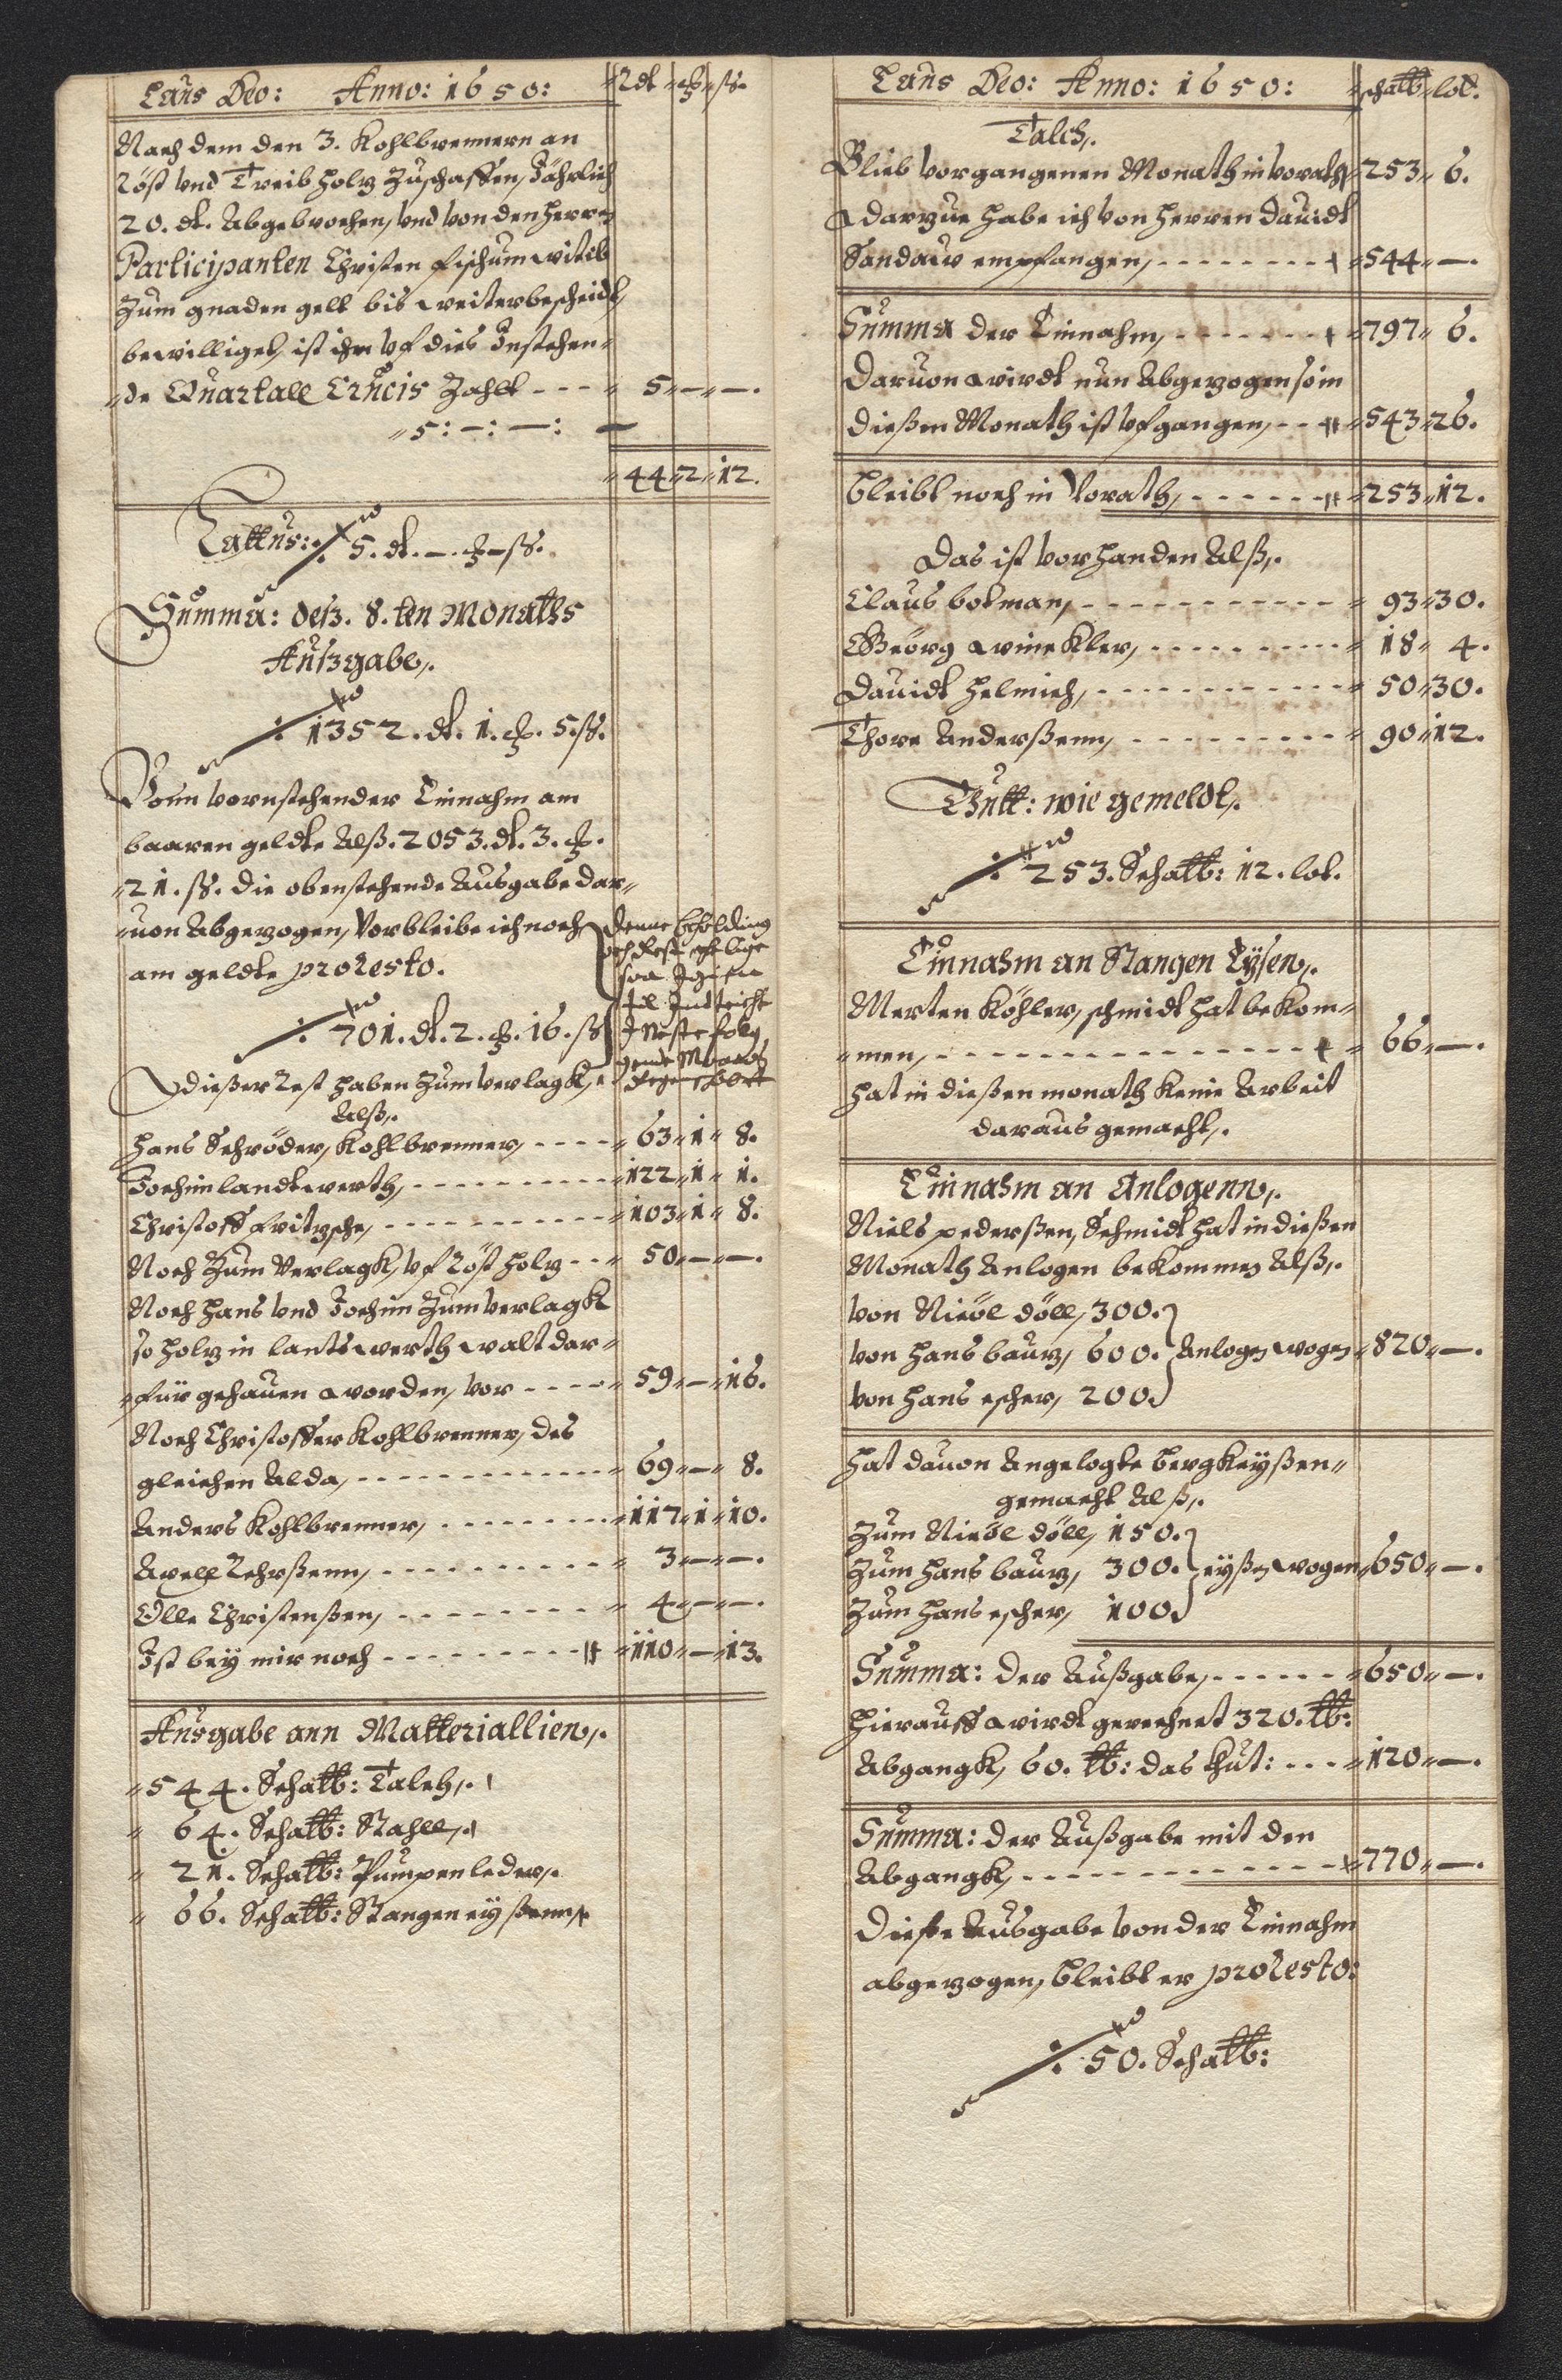 Laus Deo: Anno: 1650: Rdt
Nach dem den 3. Kohlbrennern an
Röst vnd Treibholz zuschaffen, Jährlich
20. dt. Abgebrochen, vnd von den Herrn
Participanten Christen
Zum gnaden gelt bis weiterbescheidt,
bewilliget, ist ihm vf dies Instehen„
„de Quartall Crucis Zahlt - - - „ 5„—„—.
„5:—:—: —
„44„2„12.
Lattus: ⁒ 5. dt. —. —ß.
Summa: deß. 8. ten Monaths
Außgabe,.
⁒ 1352. dt. 1. . 5. ß.
Vonn vornstehender Einnahm am
baaren geldte Alß. 2053. dt. 3. .
„21. ß. die obenstehende Ausgabe dar„
„uon Abgezogen, Verbleibe ich noch
am geldte pro Resto.
⁒ 701. dt. 2. . 16. ß
Denne beholding
Neste følg„
Dießer Rest haben zum verlagk,
Alß,.
Hans Schröder, Kohlbrenner, - - - - „ 63„1„ 8.
Jochim landtwerth, - - - - - - - - - - „122„1„ 1.
Christoff fritzsche, - - - - - - - - - - - „103„1„ 8.
Noch Zum Verlagk, vf Röst holz - - „ 50„—„—.
Noch Hans vnd Jochim Zum verlagk
so holz in lantswerth walt dar„
„für gehauen worden, vor - - - - „ 59„—„16.
Noch Christoffer Kohlbrenner, des
gleichen Alda, - - - - - - - - - - - - - „ 69„—„ 8.
Anders Kohlbrenner, - - - - - - - - - „117„1„10.
Axell Rehrßenn, - - - - - - - - - - „ 3„—„—.
Olle Christenßen, - - - - - - - - - „ 4„—„—.
Ist bey mir noch - - - - - - - - - „110„—„13.
Ausgabe ann Matteriallien,.
„544. Scha℔: Talch,.
„ 64. Scha℔: Stahll,.
„ 21. Scha℔: Pumpenleder,.
„ 66. Scha℔: Stangen eyßenn,
Laus Deo: Anno: 1650: „scha℔„lot.
Talch,.
Blieb vorgangenen Monath in vorath, „253„ 6.
Darzue habe ich von Herren Dauidt
Sandauw empfangen, - - - - - - - - - „544„—.
Summa der Einnahm, - - - - - - - „797„ 6.
Daruon wirdt nun Abgezogen so in
dießen Monath ist vfgangen, - - „543„26.
bleibt noch in Vorath, - - - - - - „253„12.
Das ist vorhanden Alß,.
Claus botman, - - - - - - - - - - - - „ 93„30.
Geörg winckler, - - - - - - - - - - „ 18„ 4.
Dauidt Helmich, - - - - - - - - - - - „ 50„30.
Thore Anderßenn, - - - - - - - - - - „ 90„12.
Thutt: wie gemeldt,.
⁒ 253. Scha℔: 12. lot.
Einnahm an Stangen Eysen,.
Merten Köhler, schmidt hat bekom„
„men, - - - - - - - - - - - - - - - - - „ 66„—.
hat in dießen monath keine Arbeit
daraus gemacht,.
Einnahm an Anlogenn,.
Niels pederßen, Schmidt hat in dießen
Monath Anlogen bekommen Alß,.
von Nieöl döll, 300.
von Hans bauz, 600. Anlogen wogen „820„—.
von Hans escher, 200.
Hat dauon Angelogte bergkeyßen„
gemacht Alß,.
Zum Nieöl döll, 150.
Zum Hans bauz, 300. eyßen wogen „650„—.
Zum Hans escher, 100.
Summa: der Außgabe, - - - - - - „650„—.
Hierauff wirdt gerechnet 320. ℔:
Abgangk, 60. ℔: das Hut: - - - „120„—.
Summa: der Außgabe mit den
Abgangk, - - - - - - - - - - - - - „770„—.
Dieße Ausgabe von der Einnahm
abgezogen, bleibt er pro Resto:
⁒ 50. Scha℔: